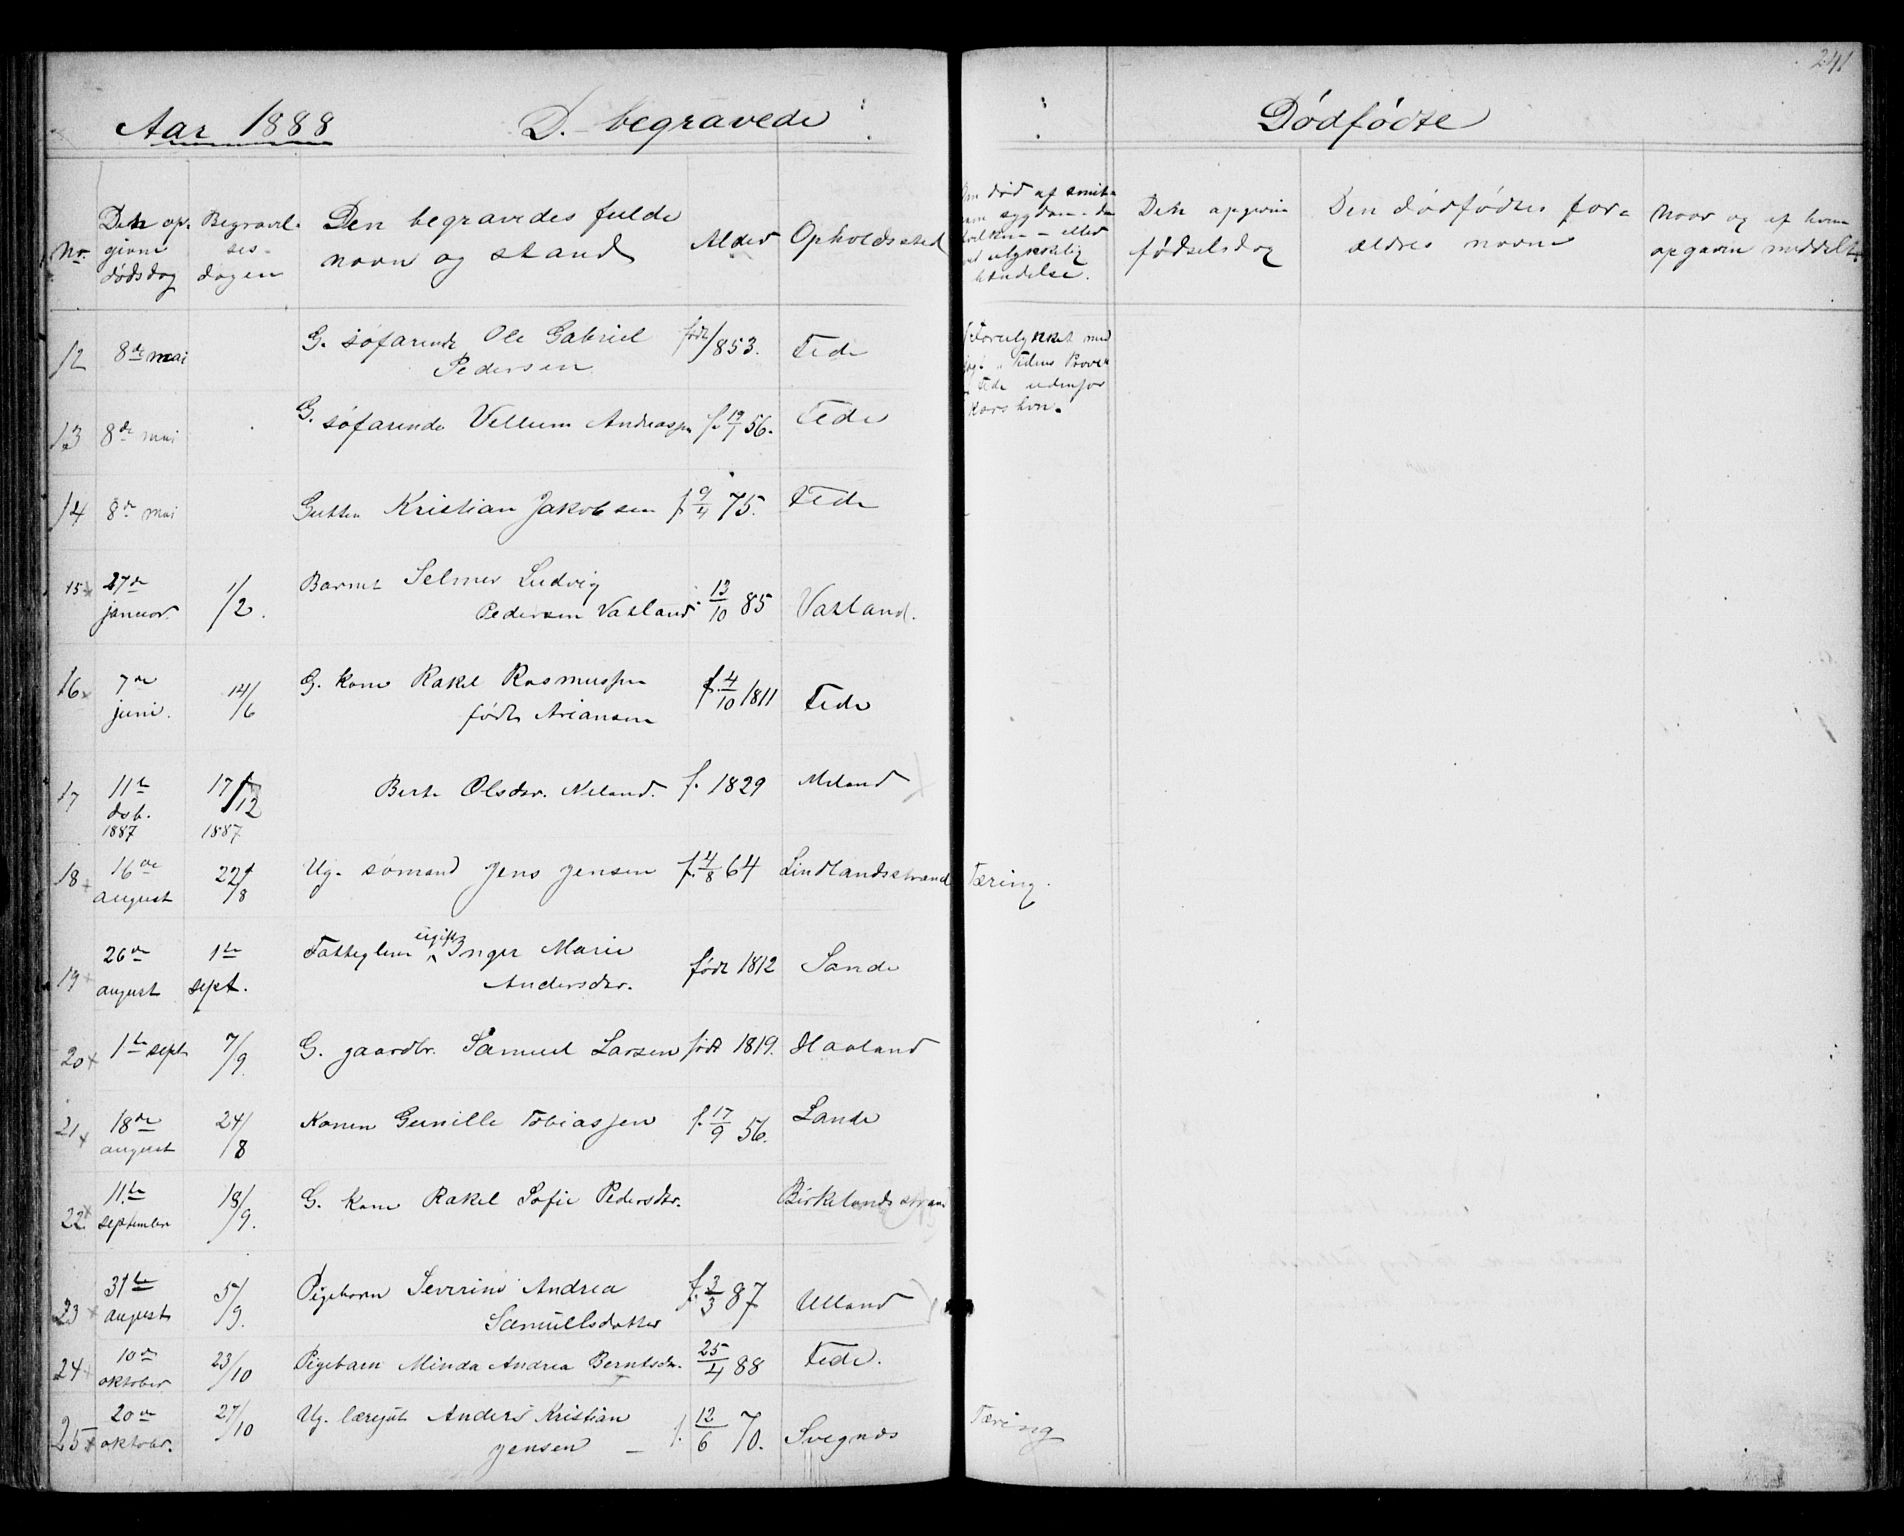 241
Aar 1888 D. begravede
Dødfødte
No.
Den op-
givne
dødsdag
Begravel-
ses-
dagen
Den begravedes fulde
navn og stand
Alder
Opholdssted
Om død af smit-
som sygdom
eller
ulykkelig
hændelse.
Den opgivne
fødselsdag
Den dødfødtes for-
ældres navne
Naar og af hvem
opgaven meddelt
12 8de mai G. søfarende Ole Gabriel født/853. Fede Forulykket med
Pedersen
Fede udenfor
13 8de mai G. søfarende Vellum Andreassen f. 19/1 56. Fede
14 8de mai Gutten Kristian Jakobsen f 9/4 75. Fede
15 27de januar. 1/2. Barnet Selmer Ludvig
Pedersen Vatland 13/10 85 Vatland.
16 7de juni. 14/6 G. kone Rakel Rasmussen
født Ariansen f. 4/10 1811 Fede
17 11te dsb. 1887 17/12 1887 Berte Olsdtr. Meland. f. 1829 Meland
18 16de august 22/8 Ug. sømand Jens Jensen f. 4/8 64 Lindlandsstrand Tæring.
19 26de august 1te sept. Fattiglem ugift Inger Marie
Andersdtr. født 1812 Sande
20 1te sept 7/9. G. gaardbr. Samuel Larsen født 1819. Haaland
21 18de august 24/8 Konen Gunille Tobiassen f. 17/9 56. Lande
22 11te september 18/9. G. kone Rakel Sofie Pedersdtr. Birkelandsstrand
23 31te august 5/9. Pigebarn Severine Andrea
Samuelsdatter f. 3/3 87 Ulland
24 10de oktober 23/10 Pigebarn Minda Andrea Berntsdtr. 25/4 88 Fede.
25 20de oktober. 27/10 Ug. læregut Anders Kristian
Jensen — f. 12/6 70. Svegnes Tæring